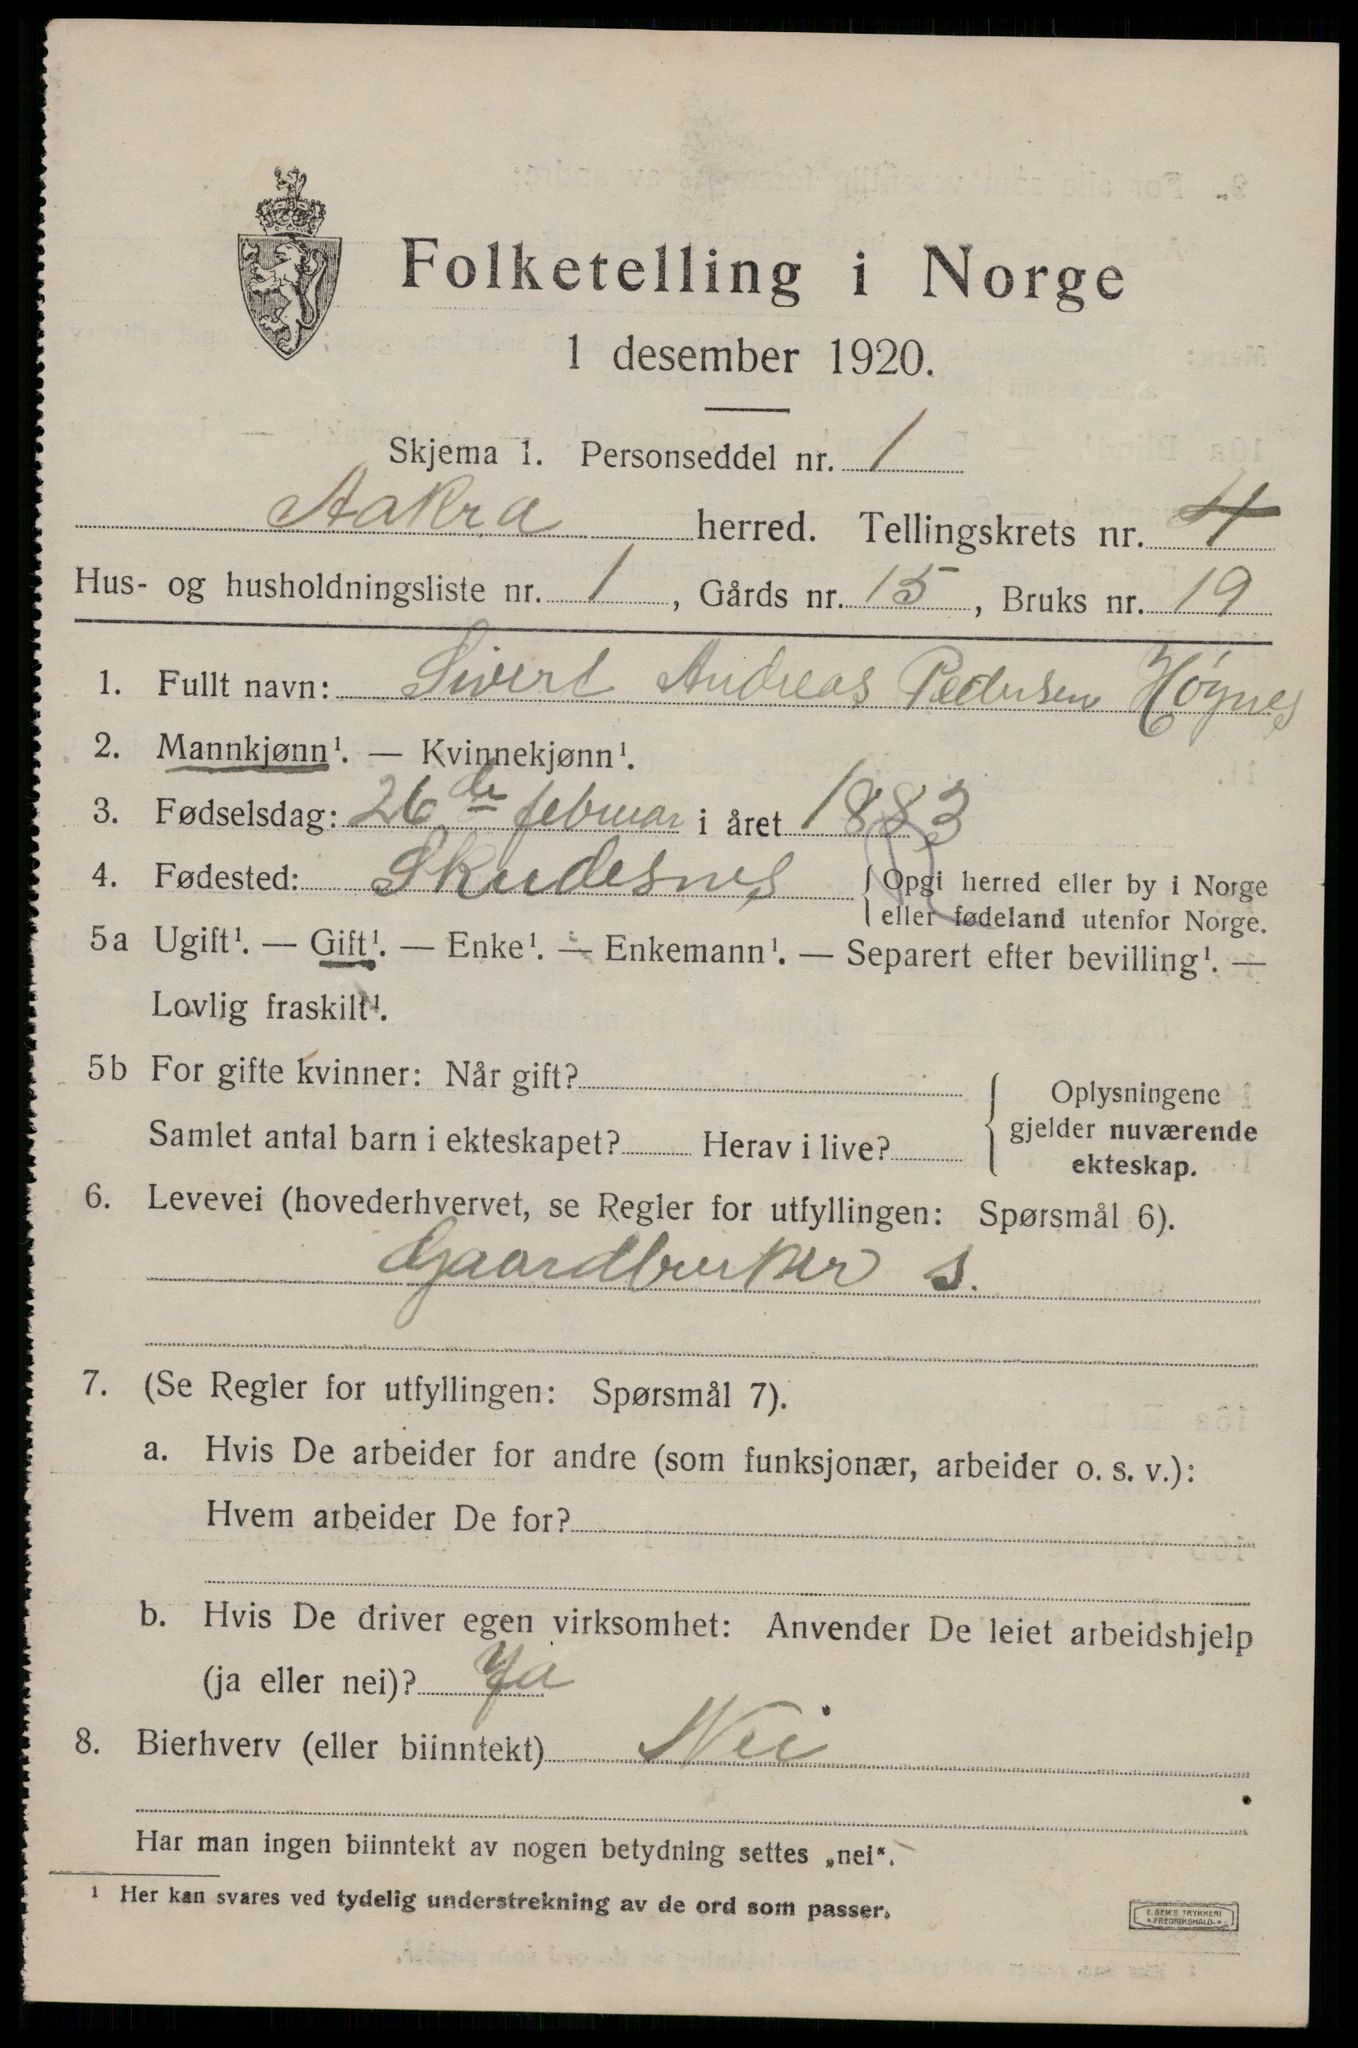 Folketelling i Norge
1 desember 1920.
Skjema 1. Personseddel nr. 1
Aakra herred. Tellingskrets nr. 4
Hus- og husholdningsliste nr. 1, Gårds nr. 15, Bruks nr. 19
1. Fullt navn: Sivert Andreas Pedersen Høynes
2. Mannkjønn¹. — Kvinnekjønn¹.
3. Fødselsdag: 26de februar i året 1883
4. Fødested: Skudesnes {Opgi herred eller by i Norge
eller fødeland utenfor Norge.
5a Ugift¹. — Gift¹. — Enke¹. — Enkemann¹. — Separert efter bevilling¹. —
Lovlig fraskilt¹.
5b For gifte kvinner: Når gift?
Samlet antal barn i ekteskapet? Herav i live?
Oplysningene
gjelder nuværende
ekteskap.
6. Levevei (hovederhvervet, se Regler for utfyllingen: Spørsmål 6).
Gaardbruker s.
7. (Se Regler for utfyllingen: Spørsmål 7).
a. Hvis De arbeider for andre (som funksjonær, arbeider o. s. v.):
Hvem arbeider De for?
b. Hvis De driver egen virksomhet: Anvender De leiet arbeidshjelp
(ja eller nei)? Ja
8. Bierhverv (eller biinntekt) Nei
Har man ingen biinntekt av nogen betydning settes „nei".
¹ Her kan svares ved tydelig understrekning av de ord som passer.
E. SEM'S TRYKKERI
FREDRIKSHALD